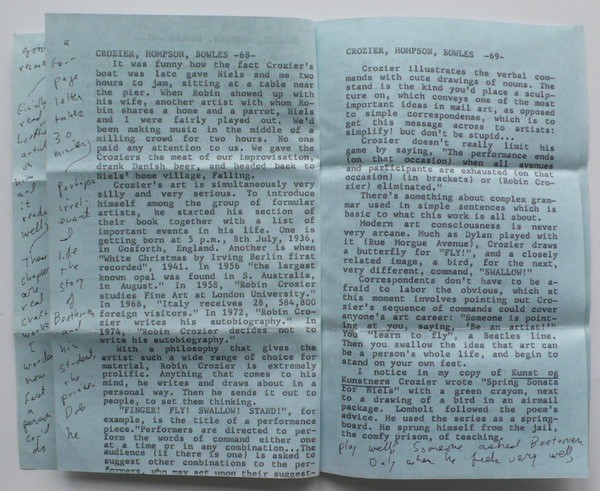 CROZIER, HOMPSON, BOWLES -68-
It was funny how the fact Crozier's
boat was late gave Niels and me two
hours to jam, sitting at a table near
the pier. When Robin showed up with
his wife, another artist with whom Ro-
bin shares a home and a parrot, Niels
and I were fairly played out. We'd
been making music in the middle of a
milling crowd for two hours. No one
paid any attention to us. We gave the
Croziers the meat of our improvisation,
drank Danish beer, and headed back to
Niels' home village, Falling.
Crozier's art is simultaneously very
silly and very serious. To introduce
himself among the group of formular
artists, he started his section of
their book together with a list of
important events in his life. One is
getting born at 5 p.m., 8th July, 1936,
in Gosforth, England. Another is when
"White Christmas by Irving Berlin first
recorded", 1941. In 1956 "the largest
known opal was found in S. Australia,
in August." In 1958, "Robin Crozier
studies Fine Art at London University."
In 1968, "Italy receives 28, 584,800
foreign visitors." In 1972, "Robin Cro-
zier writes his autobiography." In
1974, "Robin Crozier decides not to
write his autobiography."
With a philosophy that gives the
artist such a wide range of choice for
material, Robin Crozier is extremely
prolific. Anything that comes to his
mind, he writes and draws about in a
personal way. Then he sends it out to
people, to set them thinking.
"FINGER! FLY! SWALLOW! STAND!", for
example, is the title of a performance
piece. "Performers are directed to per-
form the words of command either one
at a time or in any combination...The
audience (if there is one) is asked to
suggest other combinations to the per-
formers, who may act upon their suggest-
good
a
page
letter
takes
30
minutes
Perhaps
irrel-
evant
like
the
story
of
Beethoven
and
his
student,
the
he
finally
read
artist
on
him
and
it
reads
well
chapters
are
real
I
wonder
how
fast
a
person
do
CROZIER, HOMPSON, BOWLES -69-
Crozier illustrates the verbal com-
mands with cute drawings of nouns. The
stand is the kind you'd place a sculp-
ture on, which conveys one of the most
important ideas in mail art, as opposed
to simple correspondence, which is to
get this message across to artists:
simplify! but don't be stupid...
Crozier doesn't really limit his
game by saying, "The performance ends
(on that occasion) when all avenues
and participants are exhausted (on that
occasion) (in brackets) or (Robin Cro-
zier) eliminated."
There's something about complex gram-
mar used in simple sentences which is
basic to what this work is all about.
Modern art consciousness is never
very arcane. Much as Dylan played with
it (Rue Morgue Avenue), Crozier draws
a butterfly for "FLY!", and a closely
related image, a bird, for the next,
very different, command, "SWALLOW!"
Correspondents don't have to be a-
fraid to labor the obvious, which at
this moment involves pointing out Cro-
zier's sequence of commands could cover
anyone's art career: "Someone is point-
ing at you, saying, 'Be an artist!'"
You "learn to fly", a Beatles line.
Then you swallow the idea that art can
be a person's whole life, and begin to
stand on your own feet.
I notice in my copy of Kunst og
Kunstnere Crozier wrote "Spring Sonata
for Niels" with a green crayon, next
to a drawing of a bird in an airmail
package. Lomholt followed the poem's
advice. He used the series as a spring-
board. He sprung himself from the jail,
the comfy prison, of teaching.
play well? Someone asked Beethoven
Only when he feels very well